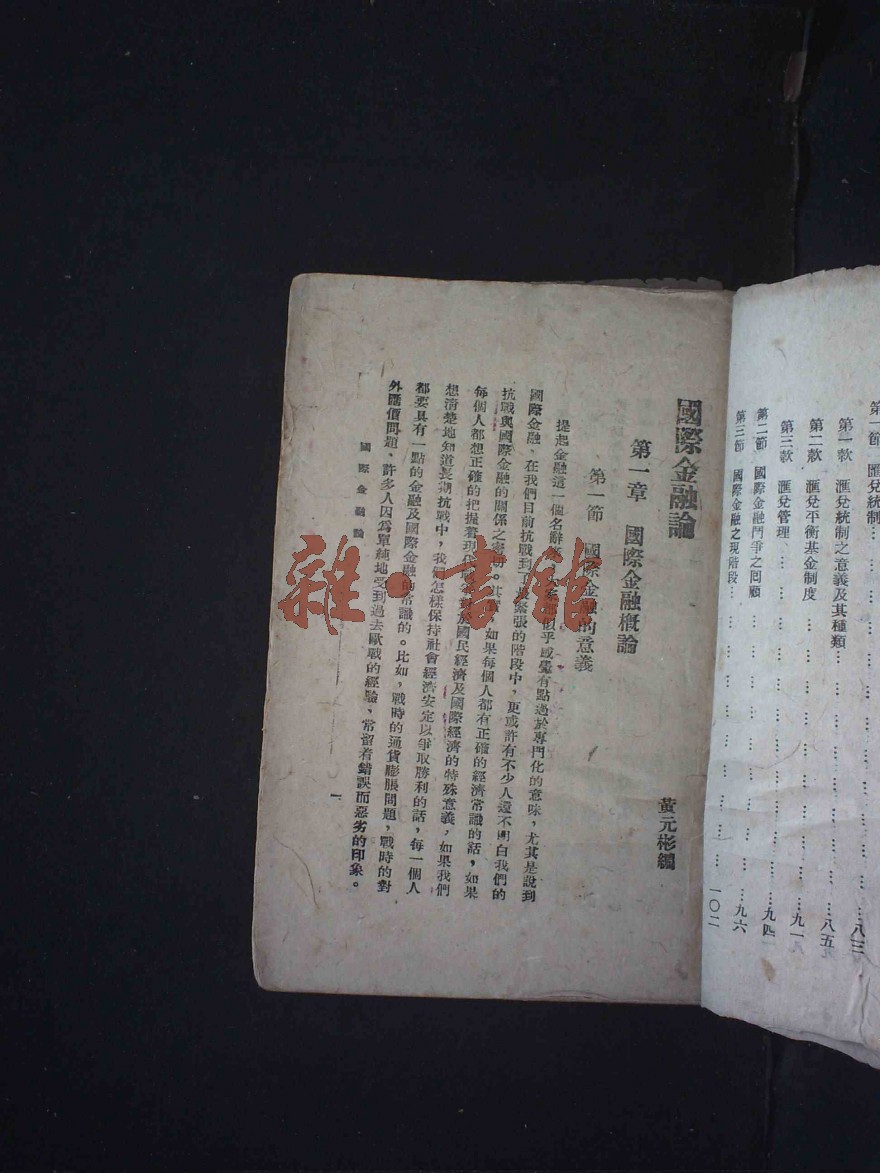 第一節　匯兌統制… … … … … … … … … …八三
第一款　匯兌統制之意義及其種類… … … … … …
第二款　匯兌平衡基金制度　… … … … … … …八五
第三款　匯兌管理… … … … … … … … …九一
第二節　國際金融鬥爭之回顧　… … … … … …九四
第三節　國際金融之現階段… … … … … … …九六
一〇二
國際金融論
黃元彬編
第一章　國際金融概論
第一節　國際金融的意義
提起金融這一個名辭似乎感覺有點過於專門化的意味，尤其是說到
國際金融，在我們目前抗戰到了緊張的階段中，更或許有不少人還不明白我們的
抗戰與國際金融的關係之密切。其實，如果每個人都有正確的經濟常識的話，如果
每個人都想正確的把握着現代國民經濟及國際經濟的特殊意義，如果我們
想清楚地知道長期抗戰中，我們怎樣保持社會經濟安定以爭取勝利的話，每一個人
都要具有一點的金融及國際金融的常識的。比如，戰時的通貨膨脹問題，戰時的對
外匯價問題，許多人因爲單純地受到過去歐戰的經驗，常留着錯誤而惡劣的印象。
國際金融論
一
雜·書館